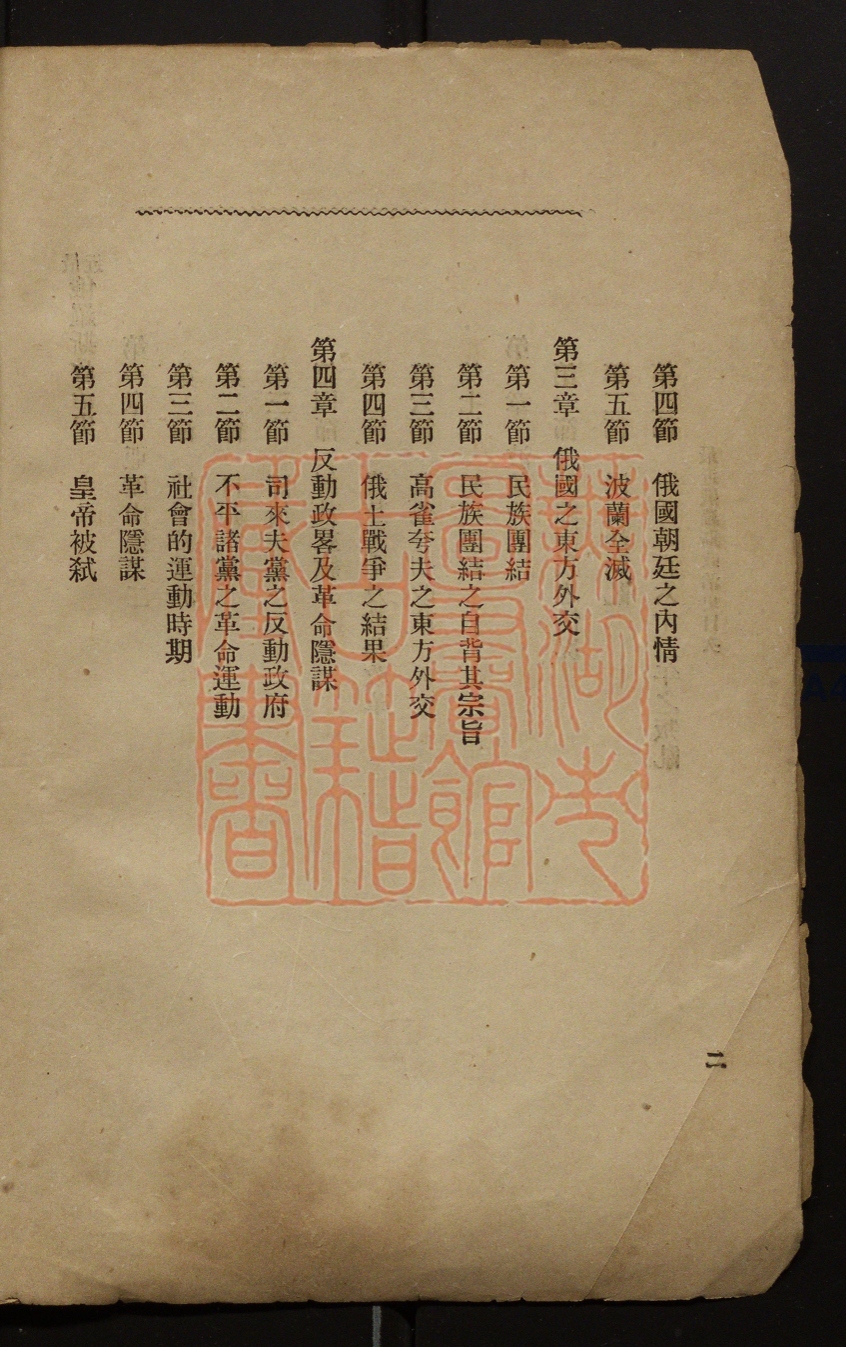 第四節 俄國朝廷之內情
第五節 波蘭全滅
第三章 俄國之東方外交
第一節 民族團結
第二節 民族團結之自背其宗旨
第三節 高雀夸夫之東方外交
第四節 俄土戰爭之結果
第四章 反動政畧及革命隱謀
第一節 司來夫黨之反動政府
第二節 不平諸黨之革命運動
第三節 社會的運動時期
第四節 革命隱謀
第五節 皇帝被弑
二